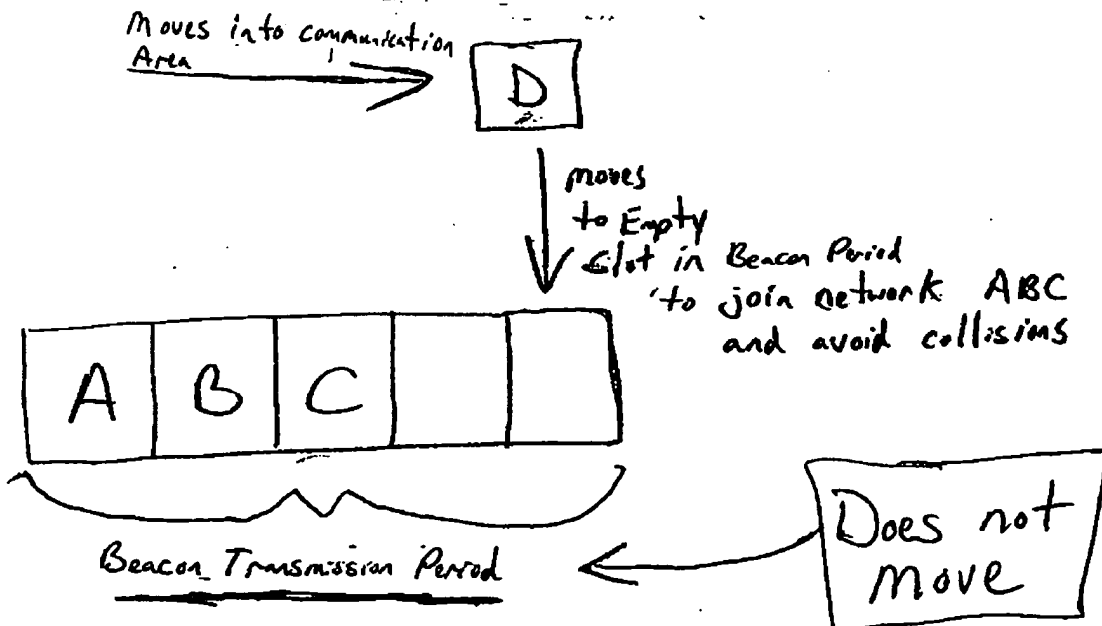 Moves into communication
Area
D
moves
to Empty
Slot in Beacon Period
to join network ABC
and avoid collisions
A B C
Beacon Transmission Period
Does not
Move